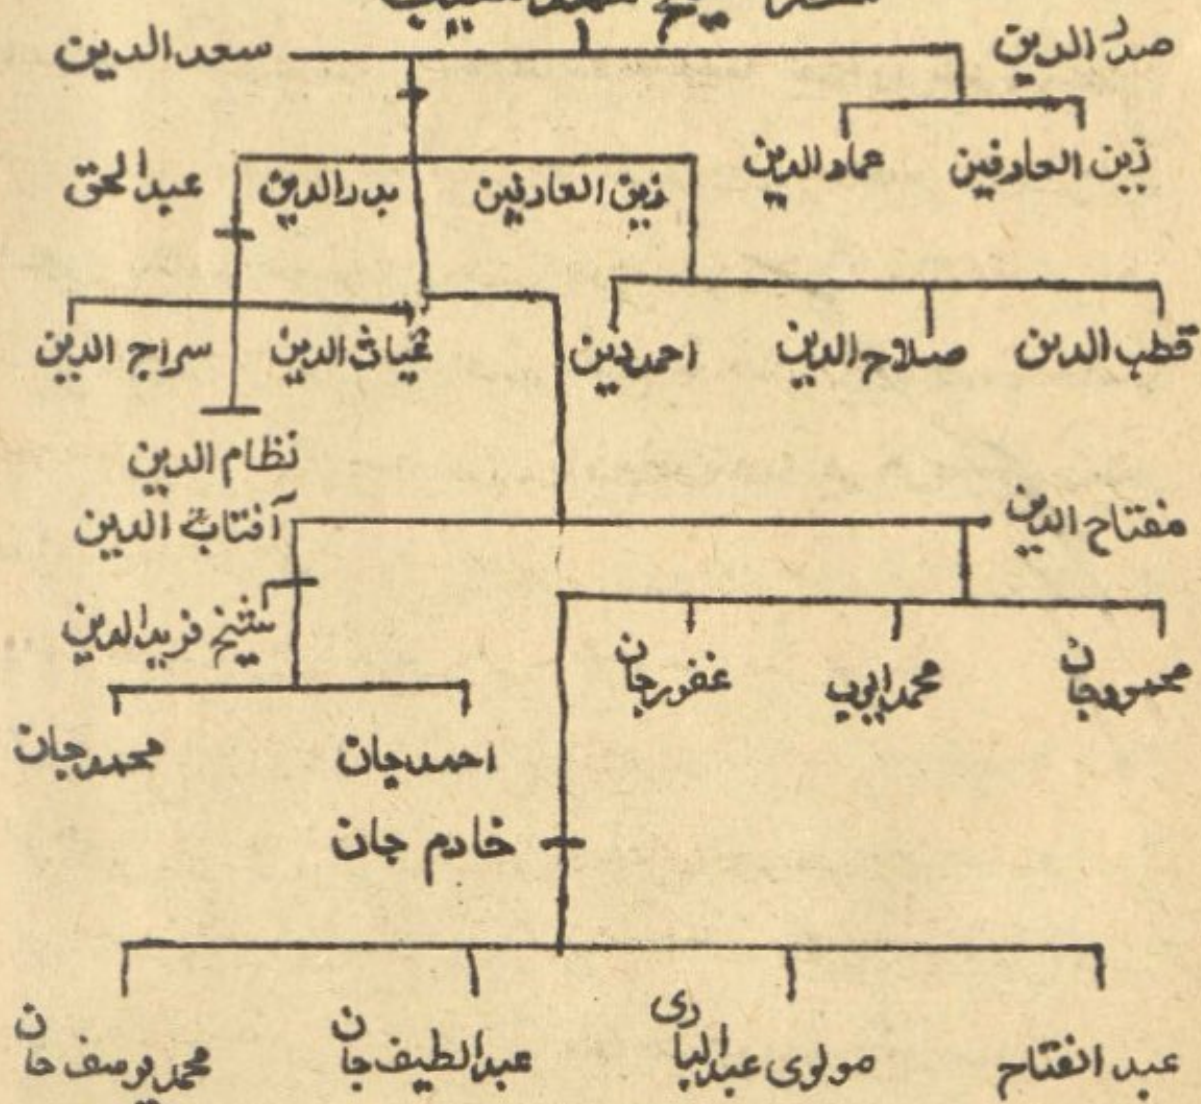 شیخ محمد
صدرالدین سعدالدین
زین العارفین عمادالدین
زین العارفین بدرالدین عبدالحق
قطب الدین صلاح الدین احمد دین غیاث الدین سراج الدین
نظام الدین
مفتاح الدین آفتاب الدین
شیخ فریدالدین
محمود جان محمد ایوب غفور جان
احمد جان محمد جان
خادم جان
عبد الفتاح مولوی عبدالباری عبدالطیف جان محمد یوسف جان